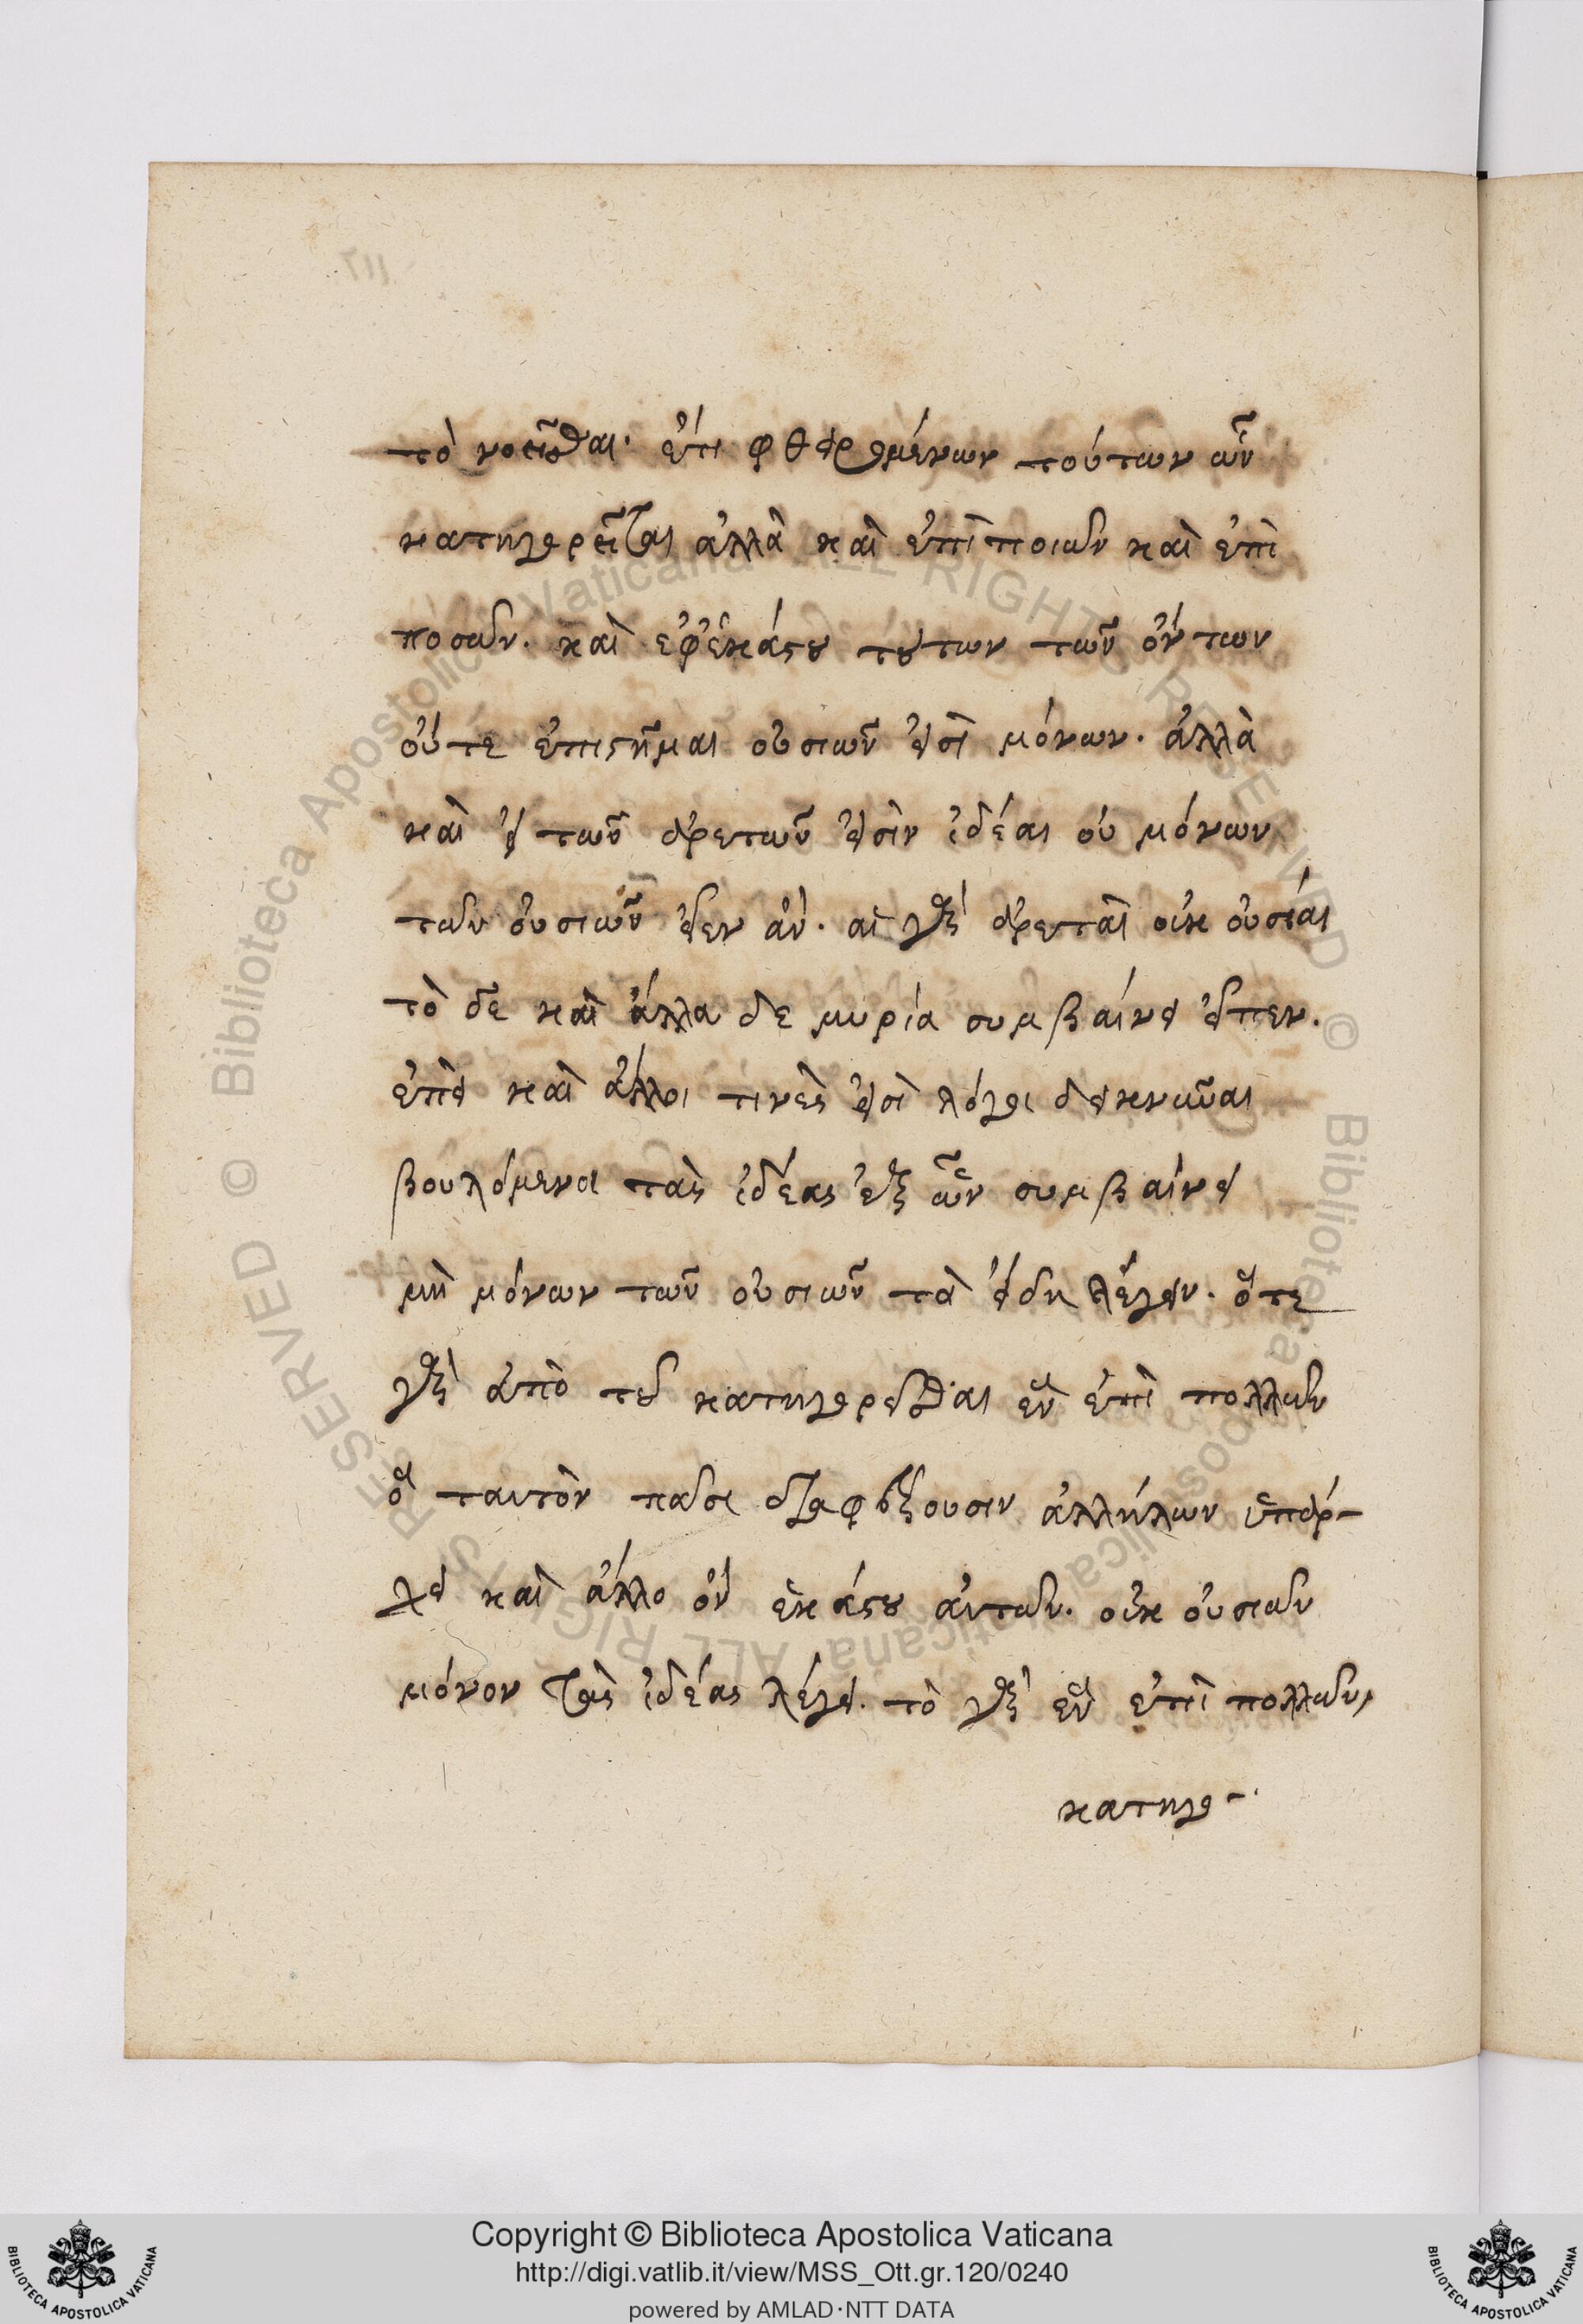 τὸ νοεῖσθαι. ἔτι φθειρομένων τούτων ὧν
κατηγορεῖται ἀλλὰ καὶ ἐπὶ ποιῶν καὶ ἐπὶ
ποσῶν. καὶ ἐφ' ἑκάστου τούτων τῶν ὄντων
οὔτε ἐπιστῆμαι οὐσιῶν εἰσὶ μόνων. ἀλλὰ
καὶ εἰ τῶν ἀρετῶν εἰσὶν ἰδέαι οὐ μόνων
τῶν οὐσιῶν εἶεν ἄν. αἱ γὰρ ἀρεταὶ οὐκ οὐσίαι
τὸ δὲ καὶ ἄλλα δὲ μυρία συμβαίνει εἶπεν.
ἐπεὶ καὶ ἄλλοι τινὲς εἰσὶ λόγοι δεικνῦναι
βουλόμενοι τὰς ἰδέας ἐξ ὧν συμβαίνει
μὴ μόνων τῶν οὐσιῶν τὰ εἴδη λέγειν. ὅτε
γὰρ ἀπὸ τοῦ κατηγορεῖσθαι ἓν ἐπὶ πολλῶν
ὃ ταυτὸν πᾶσι διαφέρουσιν ἀλλήλων ὑπάρ-
χει καὶ ἄλλο ὂν ἑκάστου αὐτῶν. οὐκ οὐσιῶν
μόνον τὰς ἰδέας λέγει. τὸ γὰρ ἓν ἐπὶ πολλῶν
κατηγο-
Copyright © Biblioteca Apostolica Vaticana
http://digi.vatlib.it/view/MSS_Ott.gr.120/0240
powered by AMLAD·NTT DATA
© Biblioteca Apostolica Vaticana ALL RIGHTS RESERVED
© Biblioteca Apostolica Vaticana ALL RIGHTS RESERVED
BIBLIOTECA APOSTOLICA VATICANA
BIBLIOTECA APOSTOLICA VATICANA